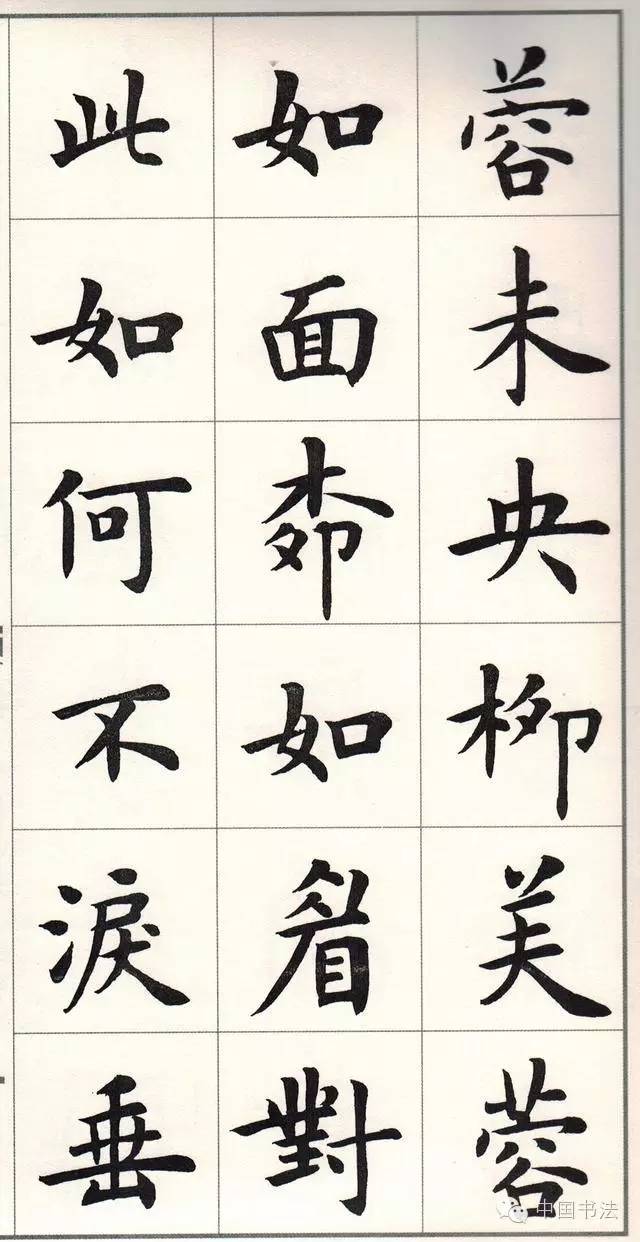 蓉未央柳芙蓉
如面柳如眉對
此如何不淚垂
中国书法